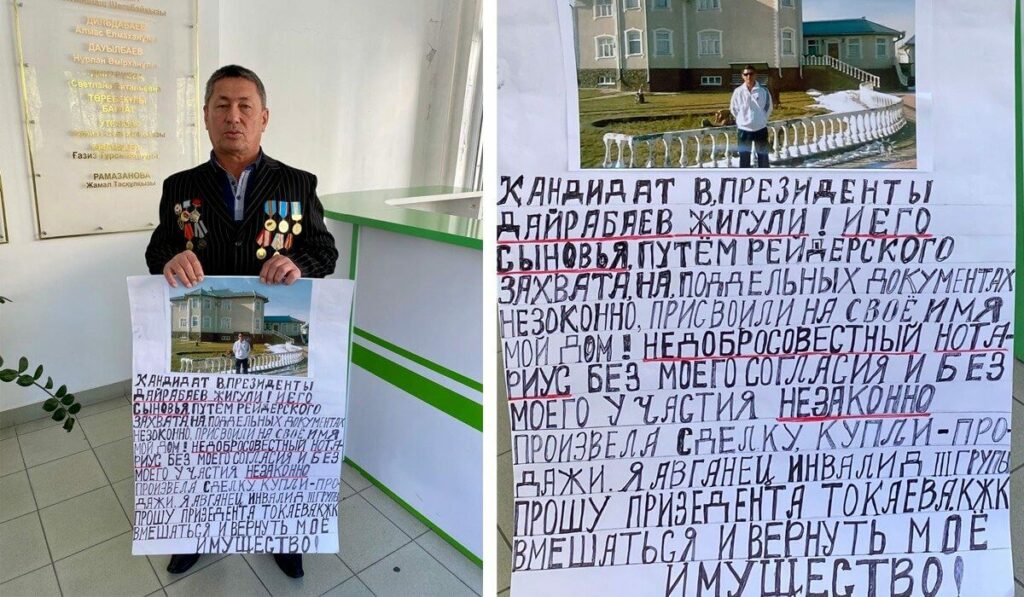 ДИЛЬДАБАЕВ
Алмас Елмаханұлы
ДАУЫЛБАЕВ
Нұрлан Өмірханұлы
Светлана
ТӨРЕБЕКҰЛЫ
Ғазиз
РАМАЗАНОВА
Жамал Тасқұлқызы
КАНДИДАТ В.ПРЕЗИДЕНТЫ
ДАЙРАБАЕВ ЖИГУЛИ! И ЕГО
СЫНОВЬЯ, ПУТЁМ РЕЙДЕРСКОГО
ЗАХВАТА, НА, ПОДДЕЛЬНЫХ ДОКУМЕНТАХ
НЕЗОКОННО, ПРИСВОИЛИ НА СВОЁ ИМЯ
МОЙ ДОМ! НЕДОБРОСОВЕСТНЫЙ НОТА-
РИУС БЕЗ МОЕГО СОГЛАСИЯ И БЕЗ
МОЕГО УЧАСТИЯ НЕЗАКОННО
ПРОИЗВЕЛА СДЕЛКУ, КУПЛИ-ПРО-
ДАЖИ. Я АВГАНЕЦ ИНВАЛИД III ГРУПЫ
ПРОШУ ПРИЗЕДЕНТА ТОКАЕВА.К.ЖК
ВМЕШАТЬСЯ И ВЕРНУТЬ МОЁ
ИМУЩЕСТВО!
КАНДИДАТ В.ПРЕЗИДЕНТЫ
ДАЙРАБАЕВ ЖИГУЛИ! И ЕГО
СЫНОВЬЯ, ПУТЁМ РЕЙДЕРСКОГО
ЗАХВАТА, НА, ПОДДЕЛЬНЫХ ДОКУМЕНТАХ
НЕЗОКОННО, ПРИСВОИЛИ НА СВОЁ ИМЯ
МОЙ ДОМ! НЕДОБРОСОВЕСТНЫЙ НОТА-
РИУС БЕЗ МОЕГО СОГЛАСИЯ И БЕЗ
МОЕГО УЧАСТИЯ НЕЗАКОННО
ПРОИЗВЕЛА СДЕЛКУ, КУПЛИ-ПРО-
ДАЖИ. Я АВГАНЕЦ ИНВАЛИД III ГРУПЫ
ПРОШУ ПРИЗЕДЕНТА ТОКАЕВА.К.ЖК
ВМЕШАТЬСЯ И ВЕРНУТЬ МОЁ
ИМУЩЕСТВО!